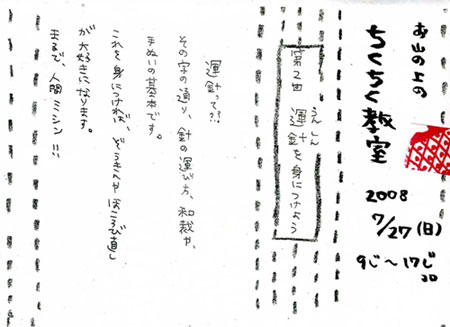 お山の上の
ちくちく教室
2008
7/27(日)
9じ〜17じ
コロ
第2回 運針を身につけよう
うんしん
運針って??
その字の通り、針の運び方、和裁や、
手ぬいの基本です。
これを身につければ、ぞうきんやほころび直し
が大好きになります。
まるで、人間ミシン!!